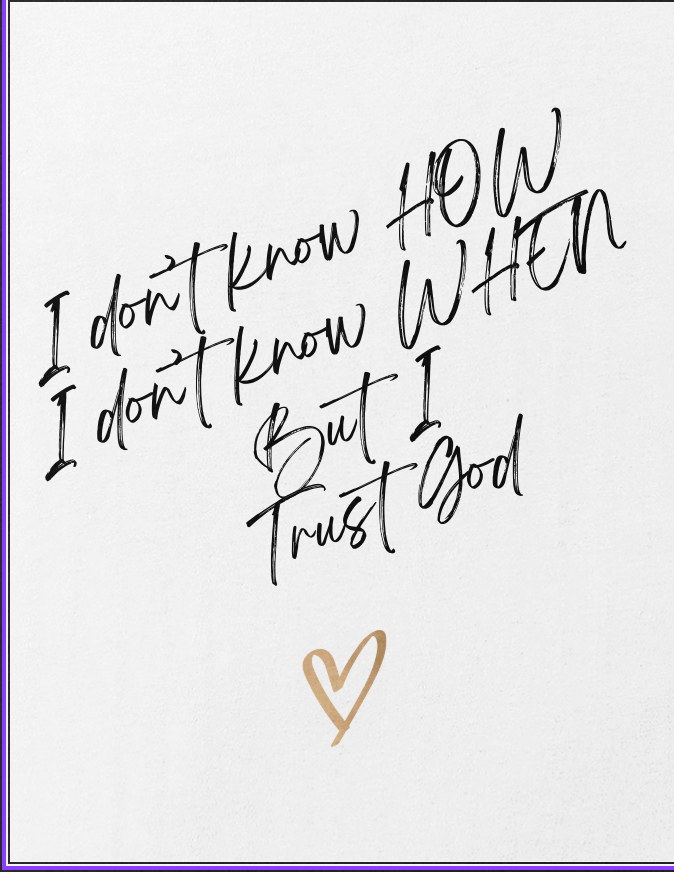 I don't know HOW
I don't know WHEN
But I
Trust God